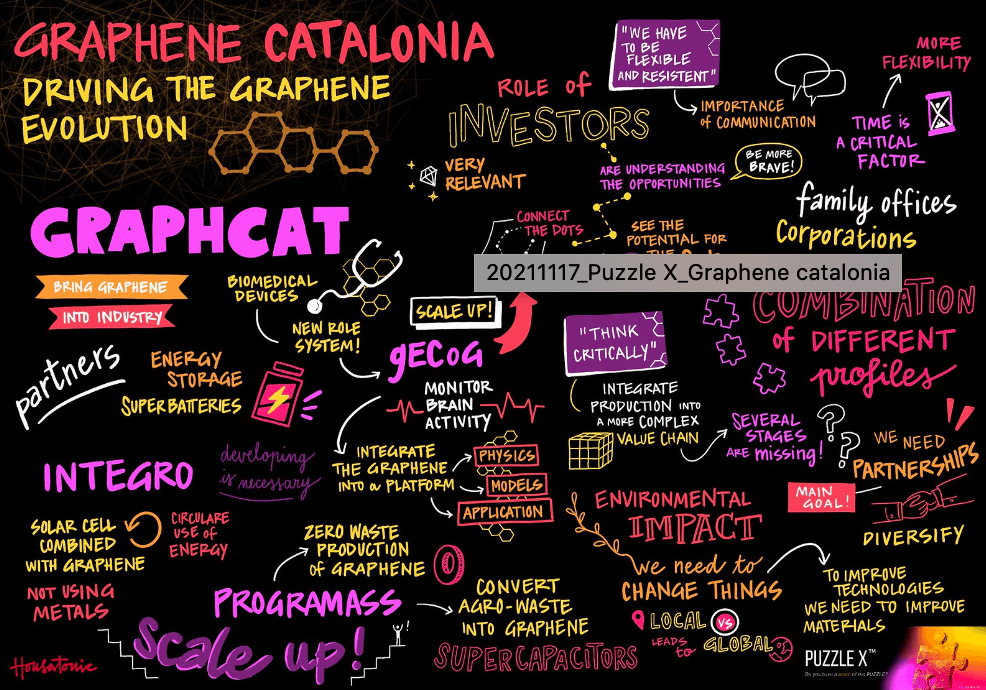 GRAPHENE CATALONIA
DRIVING THE GRAPHENE
EVOLUTION
"WE HAVE
TO BE
FLEXIBLE
AND RESISTENT"
ROLE of
INVESTORS
IMPORTANCE
of COMMUNICATION
MORE
FLEXIBILITY
TIME is
A CRITICAL
FACTOR
VERY
RELEVANT
ARE UNDERSTANDING
THE OPPORTUNITIES
BE MORE
BRAVE!
family offices
Corporations
CONNECT
THE DOTS
SEE THE
POTENTIAL FOR
20211117_Puzzle X_Graphene catalonia
GRAPHCAT
BRING GRAPHENE
INTO INDUSTRY
BIOMEDICAL
DEVICES
NEW ROLE
SYSTEM!
SCALE UP!
gECoG
MONITOR
BRAIN
ACTIVITY
partners
ENERGY
STORAGE
SUPERBATTERIES
INTEGRATE
THE GRAPHENE
INTO a PLATFORM
PHYSICS
MODELS
APPLICATION
"THINK
CRITICALLY"
INTEGRATE
PRODUCTION INTO
A MORE COMPLEX
VALUE CHAIN
COMBINATION
of DIFFERENT
profiles
SEVERAL
STAGES
ARE missing!
WE NEED
PARTNERSHIPS
MAIN
GOAL!
DIVERSIFY
INTEGRO
developing
is necessary
SOLAR CELL
COMBINED
WITH GRAPHENE
CIRCULARE
USE of
ENERGY
NOT USING
METALS
ZERO WASTE
PRODUCTION
of GRAPHENE
PROGRAMASS
CONVERT
AGRO-WASTE
INTO GRAPHENE
SUPERCAPACITORS
Scale up!
Housatonic
ENVIRONMENTAL
IMPACT
we need to
CHANGE THINGS
LOCAL VS
LEADS to
GLOBAL
TO IMPROVE
TECHNOLOGIES
WE NEED TO IMPROVE
MATERIALS
PUZZLE X™
Do you have a piece of the PUZZLE?